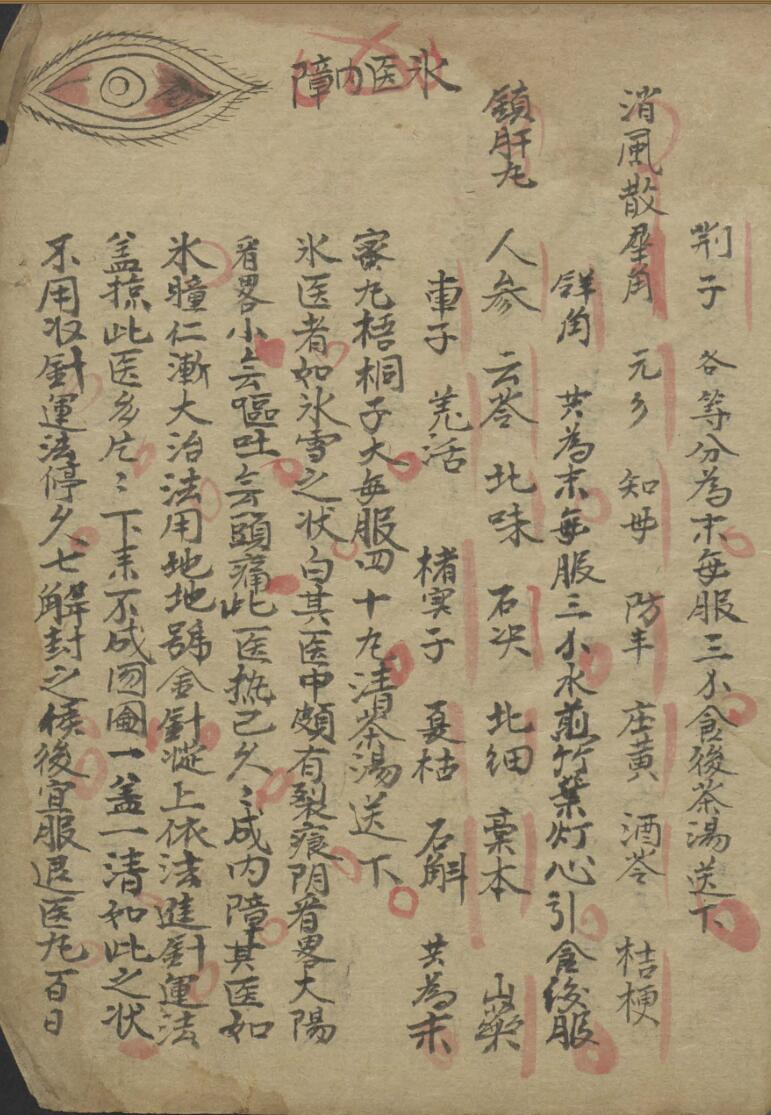 荆子 各等分為末每服三个食後茶湯送下
消風散 犀角 元参 知母 防丰 庄黄 酒芩 桔梗
羚角 共為末每服三个水煎竹葉灯心引食後服
鎮肝丸 人参 云苓 北味 石决 北细 藁本 山藥
車子 羌活 楮实子 夏枯 石斛 共為末
蜜丸梧桐子大每服四十丸清茶湯送下
氷医内障
氷医者如氷雪之状白其医中頗有裂痕阴看畧大陽
看畧小无嘔吐无頭痛此医挑已久〻成内障其医如
氷瞳仁漸大治法用地地號金針從上依法進針運法
盖掠此医多片〻下来不成囫圇一盖一清如此之状
不用收針運法停久七解封之候後宜服退医丸百日